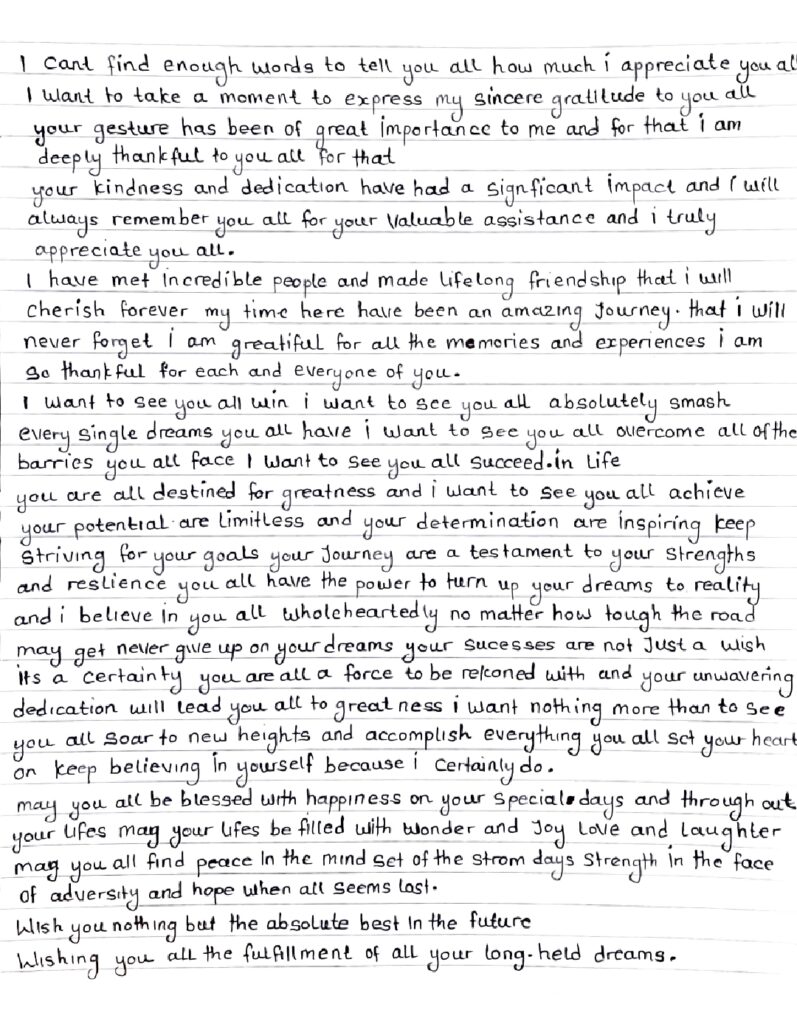 I cant find enough words to tell you all how much i appreciate you al
I want to take a moment to express my sincere gratitude to you all
your gesture has been of great importance to me and for that i am
deeply thankful to you all for that
your kindness and dedication have had a signficant impact and i will
always remember you all for your valuable assistance and i truly
appreciate you all.
I have met incredible people and made lifelong friendship that i will
cherish forever my time here have been an amazing Journey. that i will
never forget i am greatiful for all the memories and experiences i am
so thankful for each and everyone of you.
I want to see you all win i want to see you all absolutely smash
every single dreams you all have i want to see you all overcome all of the
barries you all face I want to see you all succeed.in life
you are all destined for greatness and i want to see you all achieve
your potential are limitless and your determination are inspiring keep
striving for your goals your Journey are a testament to your strengths
and reslience you all have the power to turn up your dreams to reality
and i believe in you all wholeheartedly no matter how tough the road
may get never give up on your dreams your sucesses are not Just a wish
its a certainty you are all a force to be rekoned with and your unwavering
dedication will lead you all to great ness i want nothing more than to see
you all soar to new heights and accomplish everything you all set your heart
on keep believing in yourself because i certainly do.
may you all be blessed with happiness on your special days and through out
your lifes may your lifes be filled with wonder and Joy Love and laughter
may you all find peace in the mind set of the strom days strength in the face
of adversity and hope when all seems lost.
Wish you nothing but the absolute best in the future
Wishing you all the fulfillment of all your long-held dreams.